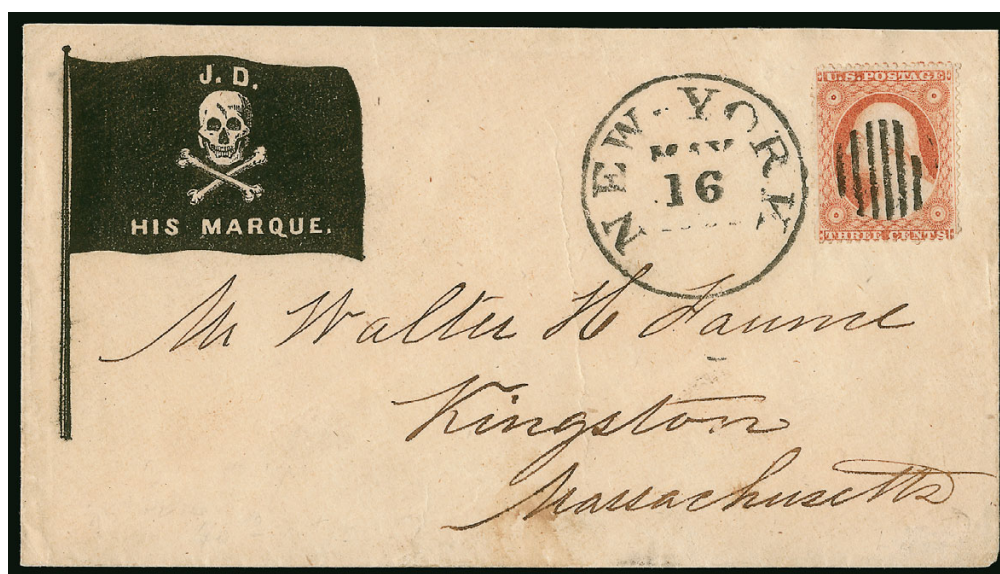 J. D.
HIS MARQUE.
NEW-YORK
MAY
16
U.S. POSTAGE
THREE CENTS
Mr Walter H Faunce
Kingston
Massachusetts